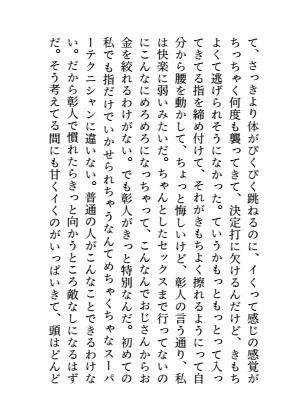 て、さっきより体がびくびく跳ねるのに、イくって感じの感覚が
ちっちゃく何度も襲ってきて、決定打に欠けるんだけど、きもち
よくて逃げられそうになかった。ていうかもっともっとって入っ
てきてる指を締め付けて、それがきもちよく擦れるようにって自
分から腰を動かして、ちょっと悔しいけど、彰人の言う通り、私
は快楽に弱いみたいだ。ちゃんとしたセックスまで行ってないの
にこんなにめろめろになっちゃって、こんなんでおじさんからお
金を絞れるわけがない。でも彰人がきっと特別なんだ。初めての
私でも指だけでいかせられちゃうなんてめちゃくちゃなスーパ
ーテクニシャンに違いない。普通の人がこんなことできるわけな
い。だから彰人で慣れたらきっと向かうところ敵なしになるはず
だ。そう考えてる間にも甘くイくのがいっぱいきて、頭はどんど